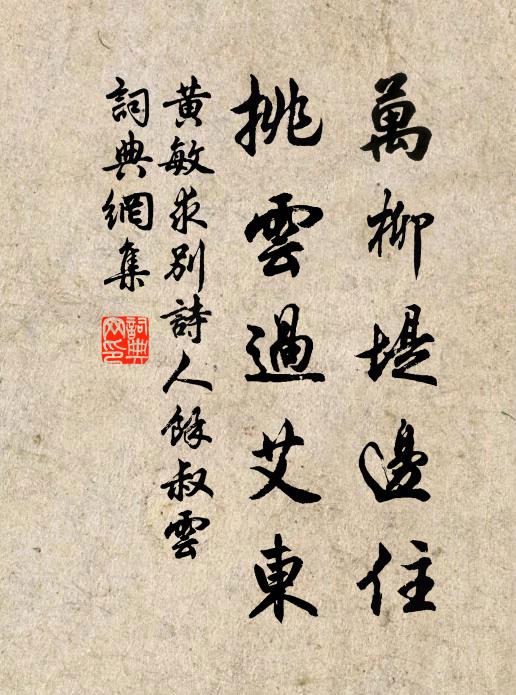 萬柳堤邊住
挑雲過艾東
黃敏求別詩人餘叔雲
詞典網集
詞典網印